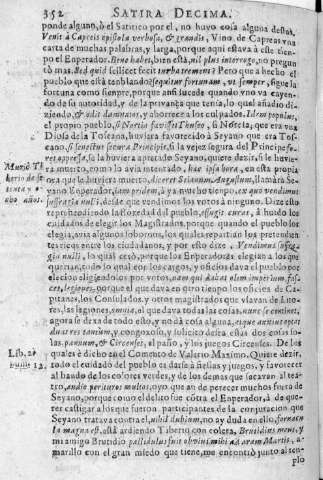 352 SATIRA DECIMA.
ponde alguno, ò el Satirico por el, no huvo cosa alguna destas,
Venit à Capreis epistola verbosa, & grandis, Vino de Capreas vna
carta de muchas palabras, y larga, porque aqui estava à este tiempo
el Emperador. Bene habet, bien està, nil plus interrogo, no pregunto
mas. Sed quid? si bien que hizo el
pueblo sequitur fortunam, vt semper, sigue la
fortuna como siempre, porque ansi sucede quando vno va cayendo
de su autoridad, y de la privança que tenia, lo qual añadio diziendo,
& odit damnatos, y aborrece a los culpados. Idem populus,
el propio pueblo, si Nortia Nortia, que era vna
Diosa de la Toscana, huviera favorecido à Seyano que era Toscano,
si senectus secura Principis, si la vejez segura del Principe
oppressa, si la huviera apretado Seyano, quiere dezir, si le huviera
muerto, como lo avia intentado, hac ipsa hora, en esta propia
ora que le huviera muerto, diceret Seianum, Augustum, llamarà Seyano
Emperador, iam pridem, à ya mucho tiempo, ex quo vendimus
suffragia nulli, desde que vendimos los votos à ninguno. Dize esto
reprehendiendo la del pueblo, effugit curas, à huido
los cuidados de elegir los Magistrados, porque quando el pueblo los
elegia, avia algunos sobornos, los quales repartian los pretendientes
entre los ciudadanos, y por esto dize. Vendimus suffragia
nulli, lo qual cessò, porque los Enperadores elegian a los que
querian, todo lo qual con los cargos, y oficios dava el pueblo por
election por votos, nam qui dabat olim imperium, fasces,
legiones, porque el que dava en otro tiempo los oficios de Capitanes,
los Consulados, y otros magistrados que vsavan de
las legiones, omnia, al que dava todas las cosas, nunc se continet,
agora se dexa de todo esto, y no dà cosa alguna,
duas res tantum, y congoxoso, y solicito desea estas dos cosas solas,
panem, & Circenses, el pasto, y los juegos Circenses. De los
quales è dicho en el Comento de Valerio Maximo. Quiere dezir,
todo el cuidado del pueblo es dado à fiestas y juegos, y favorecer
al bando de los colores verdes, y de los demas que sacavan al teatro,
audio perituros multos, oyo que an de perecer muchos fuera de
Seyano, porque como el delito fue côtra el Emperador, à de querer
castigar a los que fueron participantes de la conjuracion que
Seyano tratava contra el, nihil dubium, no ay duda en ello, fornacula
magna est, està ardiendo Tiberio con colera, Brutidius meus, y
mi amigo Brutidio pallidulus fuit obvius mihi ad aram Martis, amarillo
con el gran miedo que tiene, me encontrò junto al templo
Murio Tiberio
de setenta
y ocho
años.
Lib. 2.
12.